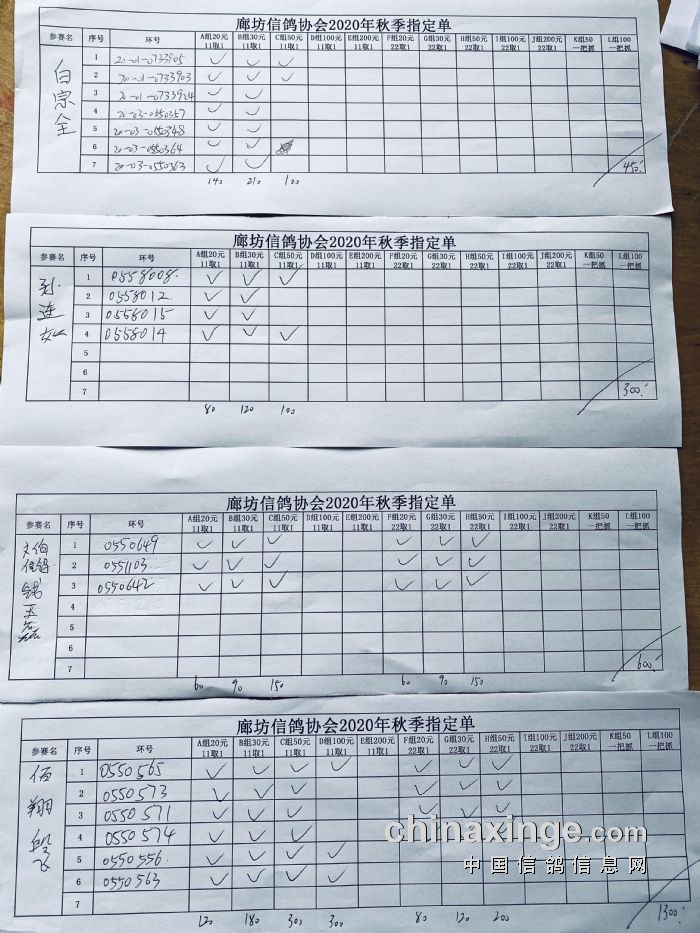 廊坊信鸽协会2020年秋季指定单
参赛名 序号 环号 A组20元 11取1 B组30元 11取1 C组50元 11取1 D组100元 11取1 E组200元 11取1 F组20元 22取1 G组30元 22取1 H组50元 22取1 I组100元 22取1 J组200元 22取1 K组50 一把抓 L组100 一把抓
白宗全
1 20-01-0733905 ✓ ✓ ✓
2 20-01-0733903 ✓ ✓ ✓
3 20-01-0733924 ✓ ✓
4 20-03-0550357 ✓ ✓
5 20-03-0550348 ✓ ✓
6 20-03-0550364 ✓ ✓
7 20-03-0550363 ✓ ✓ 450.
140 210 100
廊坊信鸽协会2020年秋季指定单
参赛名 序号 环号 A组20元 11取1 B组30元 11取1 C组50元 11取1 D组100元 11取1 E组200元 11取1 F组20元 22取1 G组30元 22取1 H组50元 22取1 I组100元 22取1 J组200元 22取1 K组50 一把抓 L组100 一把抓
孙连
1 0558008 ✓ ✓ ✓
2 0558012 ✓ ✓
3 0558015 ✓ ✓
4 0558014 ✓ ✓ ✓
5
6
7 300.
80 120 100
廊坊信鸽协会2020年秋季指定单
参赛名 序号 环号 A组20元 11取1 B组30元 11取1 C组50元 11取1 D组100元 11取1 E组200元 11取1 F组20元 22取1 G组30元 22取1 H组50元 22取1 I组100元 22取1 J组200元 22取1 K组50 一把抓 L组100 一把抓
信鸽
王磊
1 0550649 ✓ ✓ ✓ ✓ ✓ ✓
2 0551103 ✓ ✓ ✓ ✓ ✓ ✓
3 0550642 ✓ ✓ ✓ ✓ ✓ ✓
4
5
6
7 600.
60 90 150 60 90 150
廊坊信鸽协会2020年秋季指定单
参赛名 序号 环号 A组20元 11取1 B组30元 11取1 C组50元 11取1 D组100元 11取1 E组200元 11取1 F组20元 22取1 G组30元 22取1 H组50元 22取1 I组100元 22取1 J组200元 22取1 K组50 一把抓 L组100 一把抓
佰翔 段飞
1 0550565 ✓ ✓ ✓ ✓ ✓ ✓ ✓
2 0550573 ✓ ✓ ✓ ✓ ✓ ✓
3 0550571 ✓ ✓ ✓ ✓ ✓ ✓
4 0550574 ✓ ✓ ✓
5 0550556 ✓ ✓ ✓ ✓
6 0550563 ✓ ✓ ✓ ✓
7 1300.
120 180 300 300 80 120 200
chinaxinge.com
中国信鸽信息网